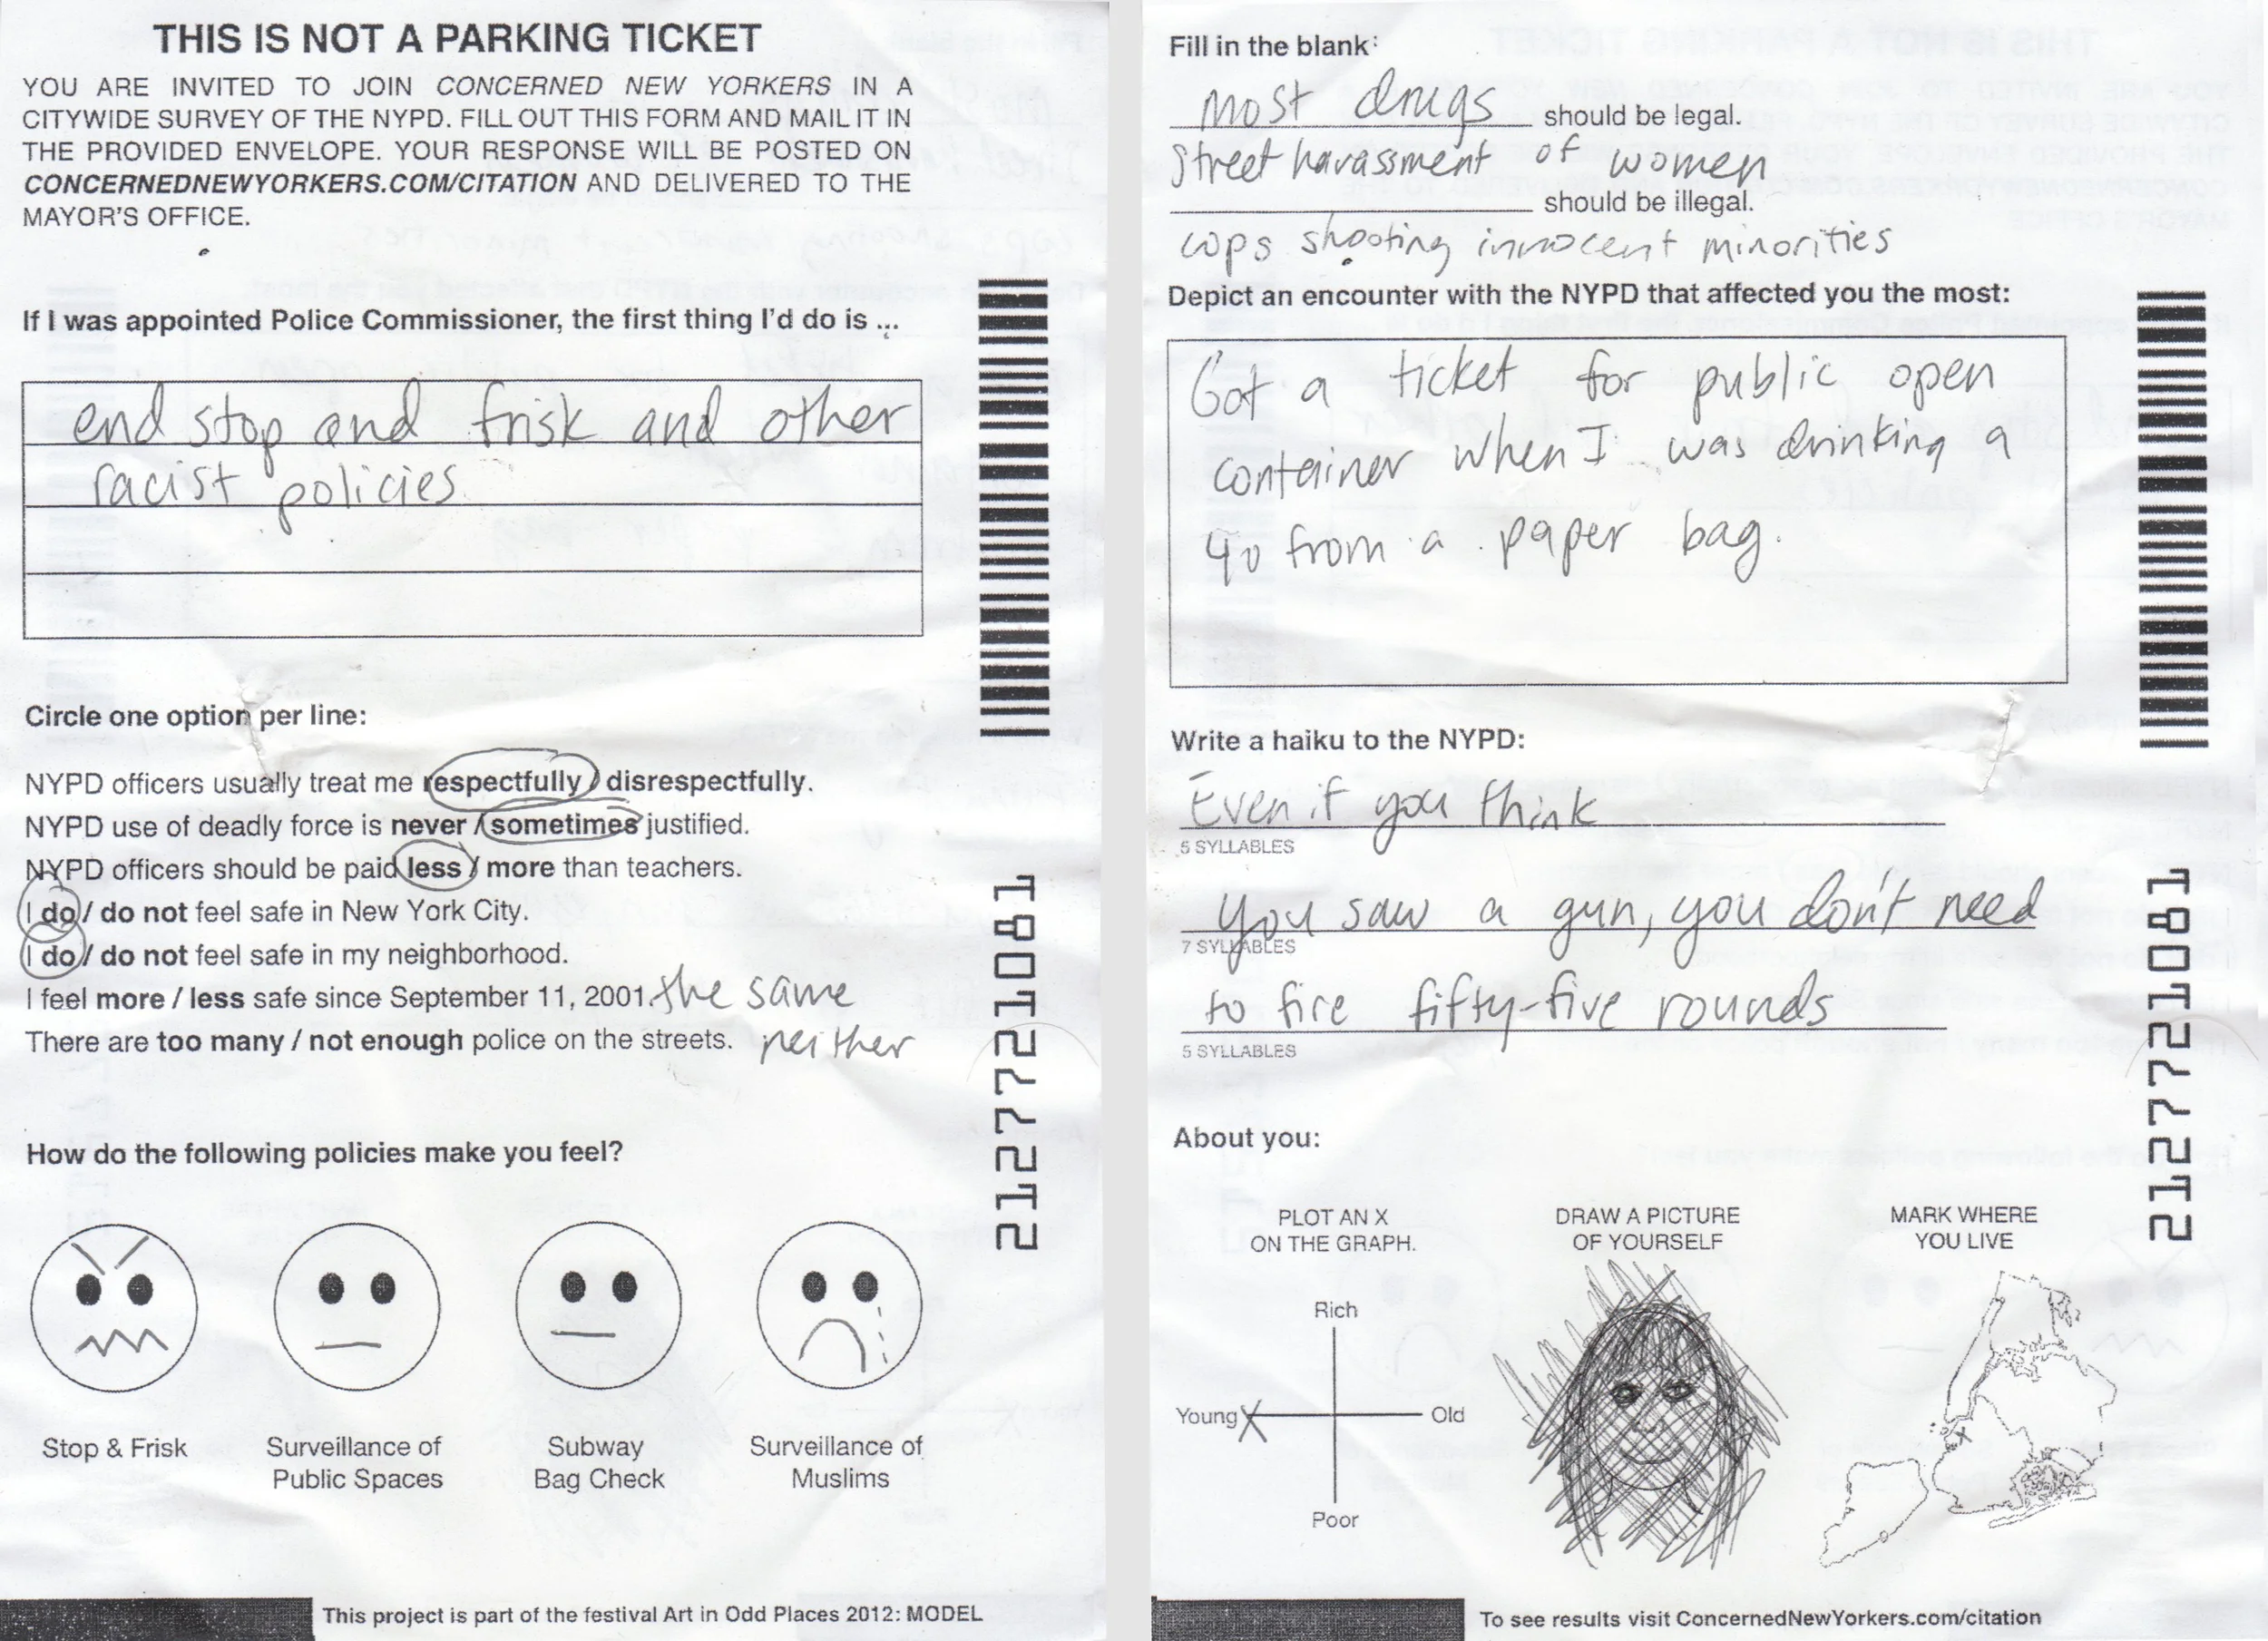 THIS IS NOT A PARKING TICKET
YOU ARE INVITED TO JOIN CONCERNED NEW YORKERS IN A
CITYWIDE SURVEY OF THE NYPD. FILL OUT THIS FORM AND MAIL IT IN
THE PROVIDED ENVELOPE. YOUR RESPONSE WILL BE POSTED ON
CONCERNEDNEWYORKERS.COM/CITATION AND DELIVERED TO THE
MAYOR'S OFFICE.
If I was appointed Police Commissioner, the first thing I'd do is ...
end stop and frisk and other
racist policies
Circle one option per line:
NYPD officers usually treat me respectfully / disrespectfully.
NYPD use of deadly force is never / sometimes justified.
NYPD officers should be paid less / more than teachers.
I do / do not feel safe in New York City.
I do / do not feel safe in my neighborhood.
I feel more / less safe since September 11, 2001. the same
There are too many / not enough police on the streets. neither
How do the following policies make you feel?
Stop & Frisk
Surveillance of
Public Spaces
Subway
Bag Check
Surveillance of
Muslims
21277721081
This project is part of the festival Art in Odd Places 2012: MODEL
Fill in the blank:
most drugs should be legal.
street harassment of women
should be illegal.
cops shooting innocent minorities
Depict an encounter with the NYPD that affected you the most:
Got a ticket for public open
container when I was drinking a
40 from a paper bag.
Write a haiku to the NYPD:
Even if you think
5 SYLLABLES
you saw a gun, you don't need
7 SYLLABLES
to fire fifty-five rounds
5 SYLLABLES
About you:
PLOT AN X
ON THE GRAPH.
Rich
Young
Old
Poor
DRAW A PICTURE
OF YOURSELF
MARK WHERE
YOU LIVE
21277721081
To see results visit ConcernedNewYorkers.com/citation